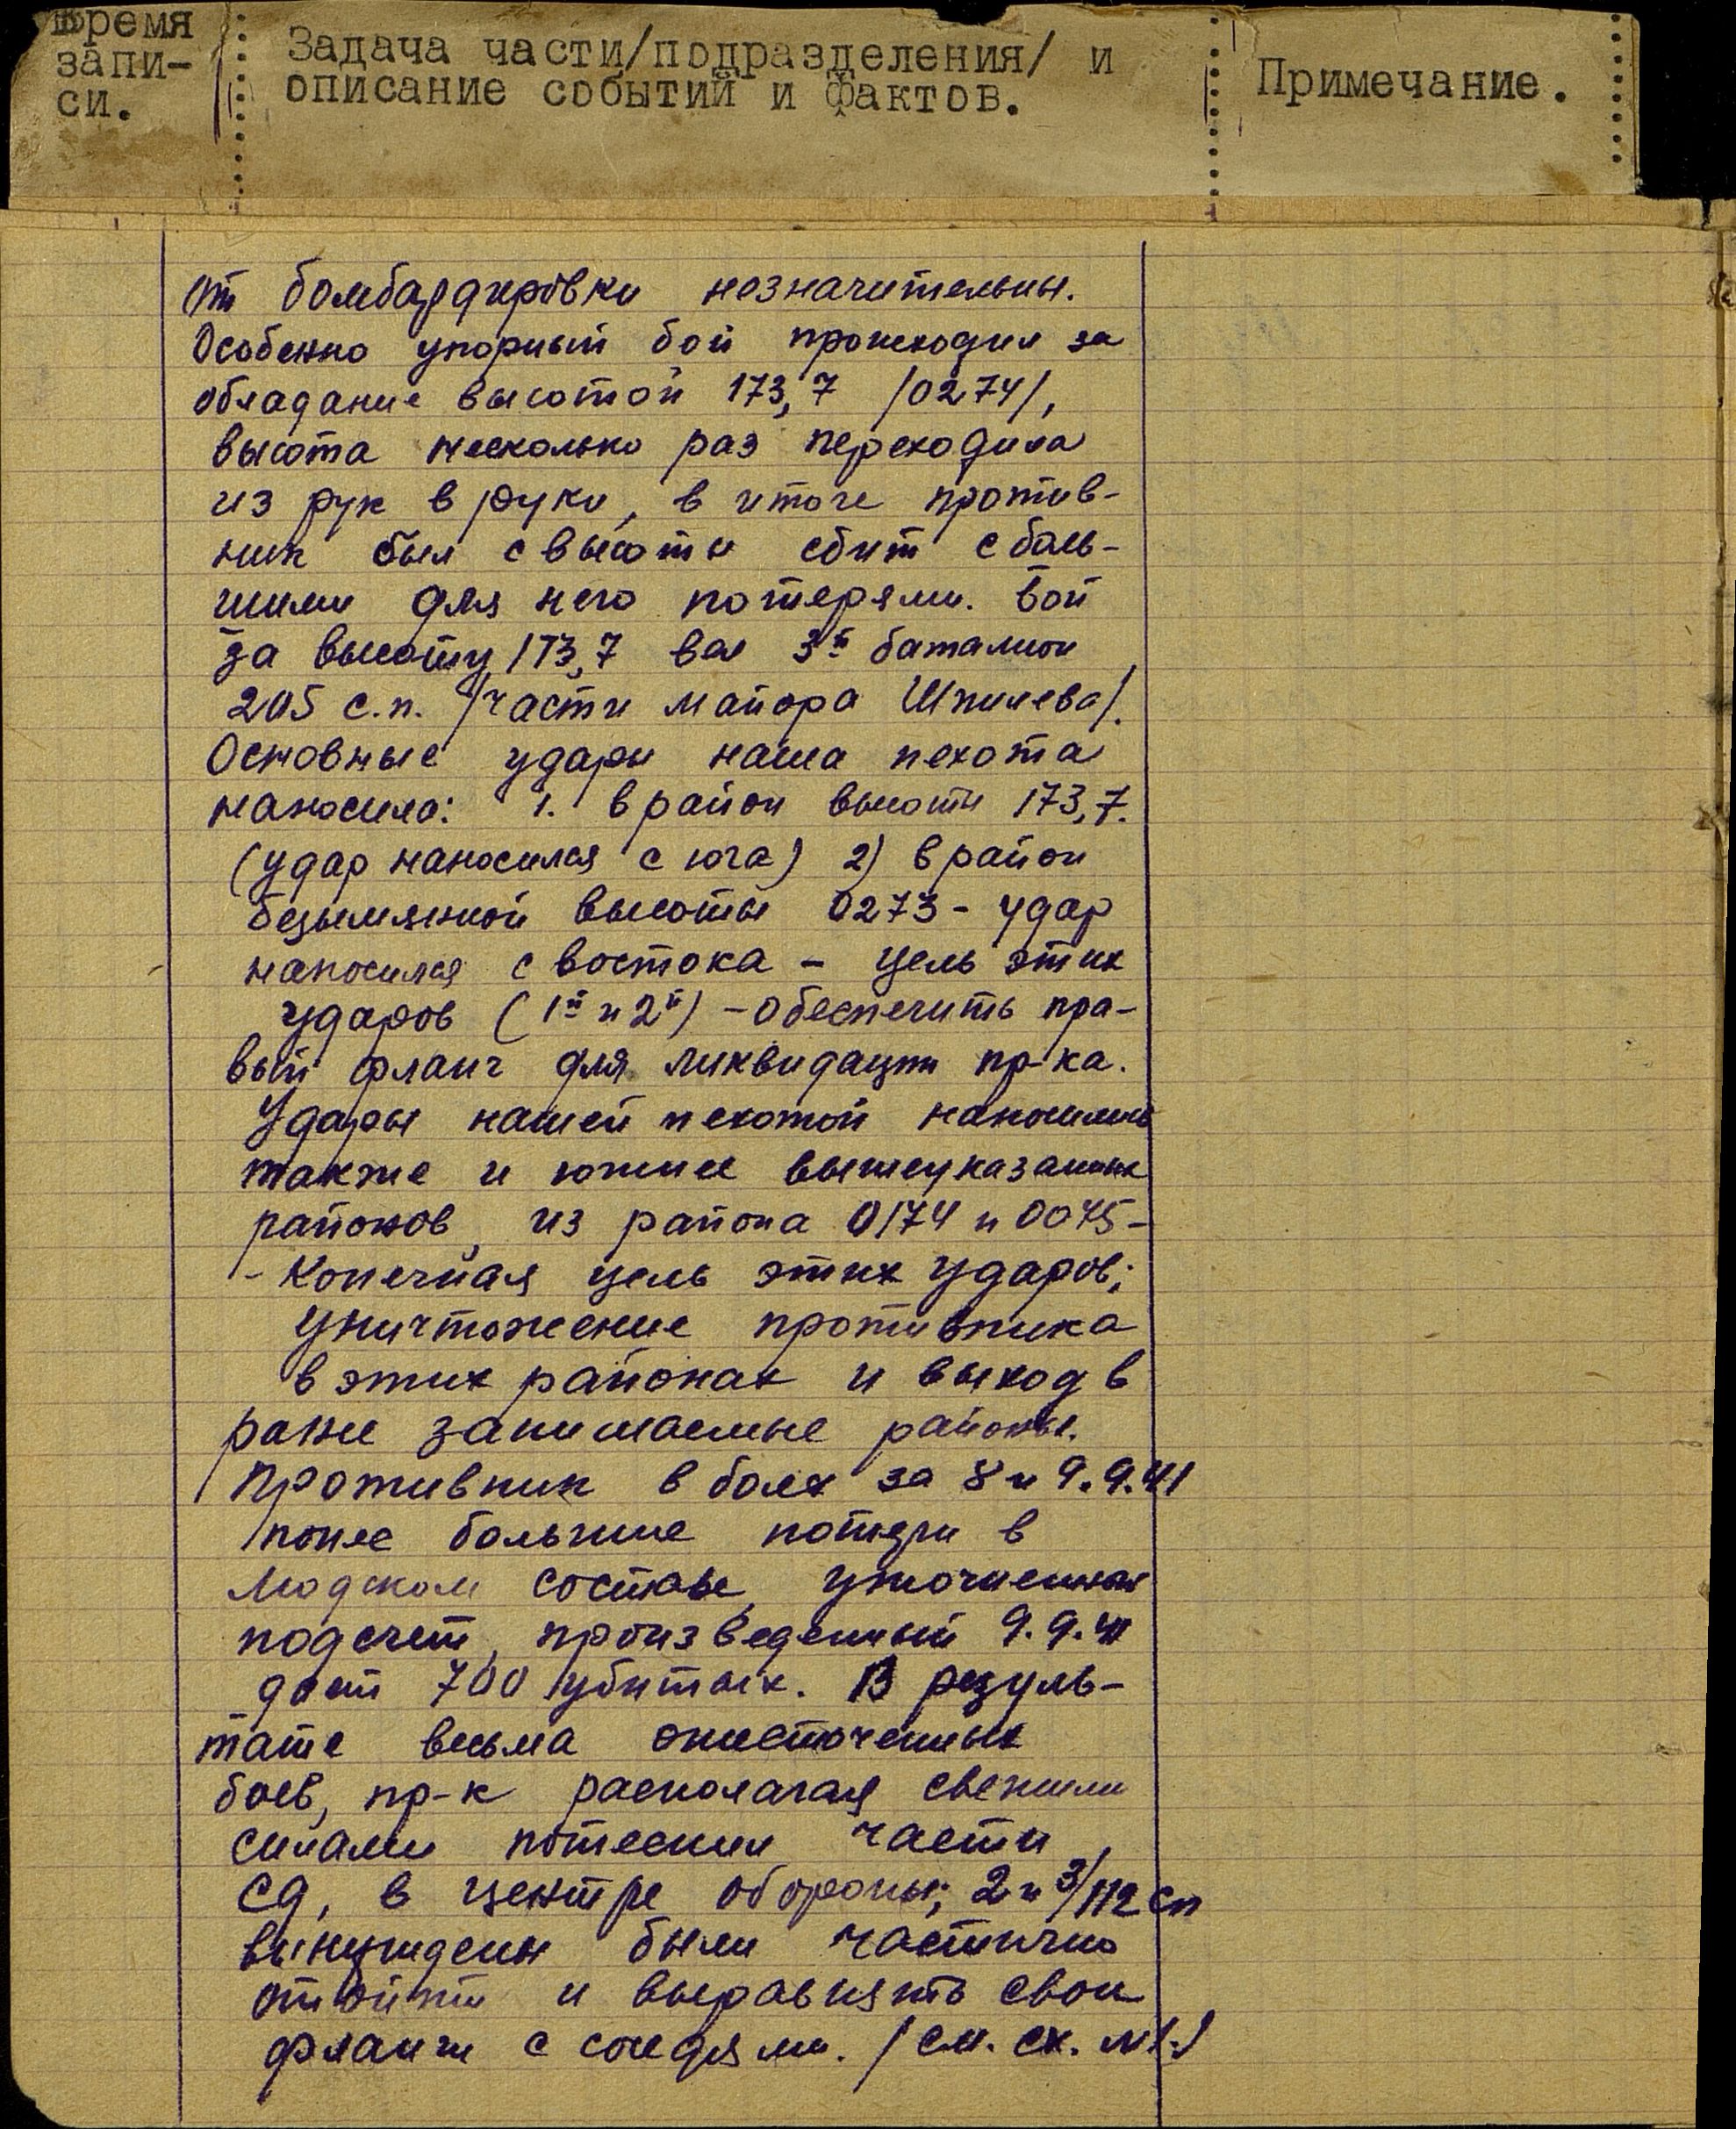 Время
запи-
си.
Задача части/подразделения/ и
описание событий и фактов.
Примечание.
от бомбардировки незначительны.
Особенно упорный бой происходил за
обладание высотой 173,7 /0274/,
высота несколько раз переходила
из рук в руки, в итоге против-
ник был с высоты сбит с боль-
шими для него потерями. Бой
за высоту 173,7 вел 3й баталион
205 с.п. /части майора Шпилева/.
Основные удары наша пехота
наносила: 1. в район высоты 173,7.
(удар наносился с юга) 2) в район
безымянной высоты 0273 - удар
наносился с востока - цель этих
ударов (1й и 2й) - обеспечить пра-
вый фланг для ликвидации пр-ка.
Удары нашей пехотой наносились
также и южнее вышеуказанных
районов, из района 0174 и 0075-
- Конечная цель этих ударов;
уничтожение противника
в этих районах и выход в
ранее занимаемые районы.
Противник в боях за 8 и 9.9.41
понес большие потери в
людском составе, уточненный
подсчет, произведенный 9.9.41
дает 700 убитых. В резуль-
тате весьма ожесточенных
боев, пр-к располагая свежими
силами потеснил части
СД, в центре обороны; 2 и 3/112 сп
вынуждены были частично
отойти и выравнять свои
фланги с соседями. /см. сх. №1./